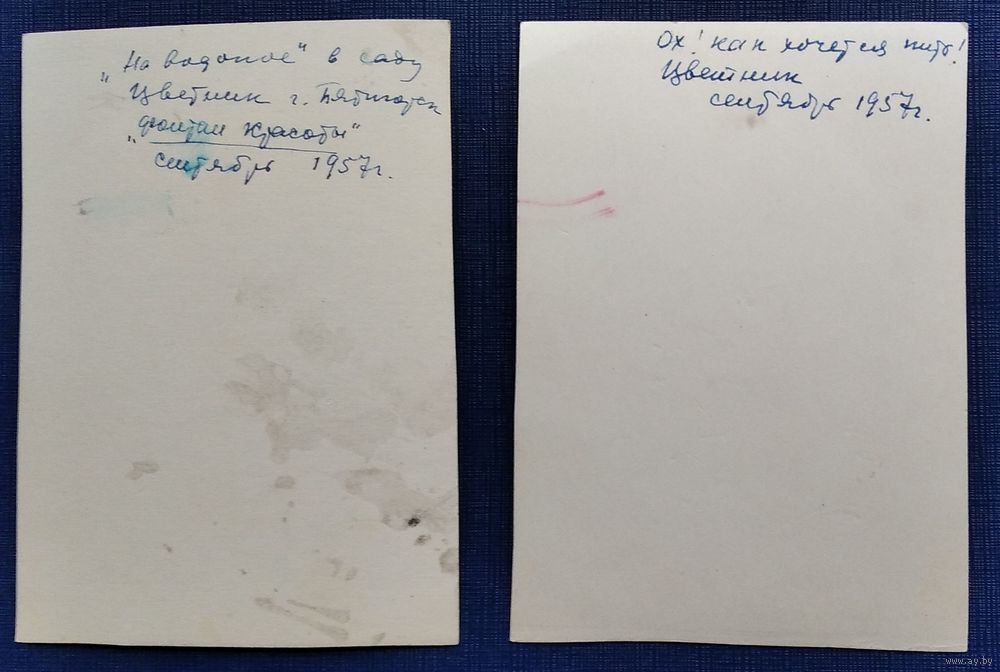 „На водопое" в саду
Цветник г. Пятигорск
„фонтан красоты"
сентябрь 1957г.
Ох! как хочется пить!
Цветник
сентябрь 1957г.
www.ay.by